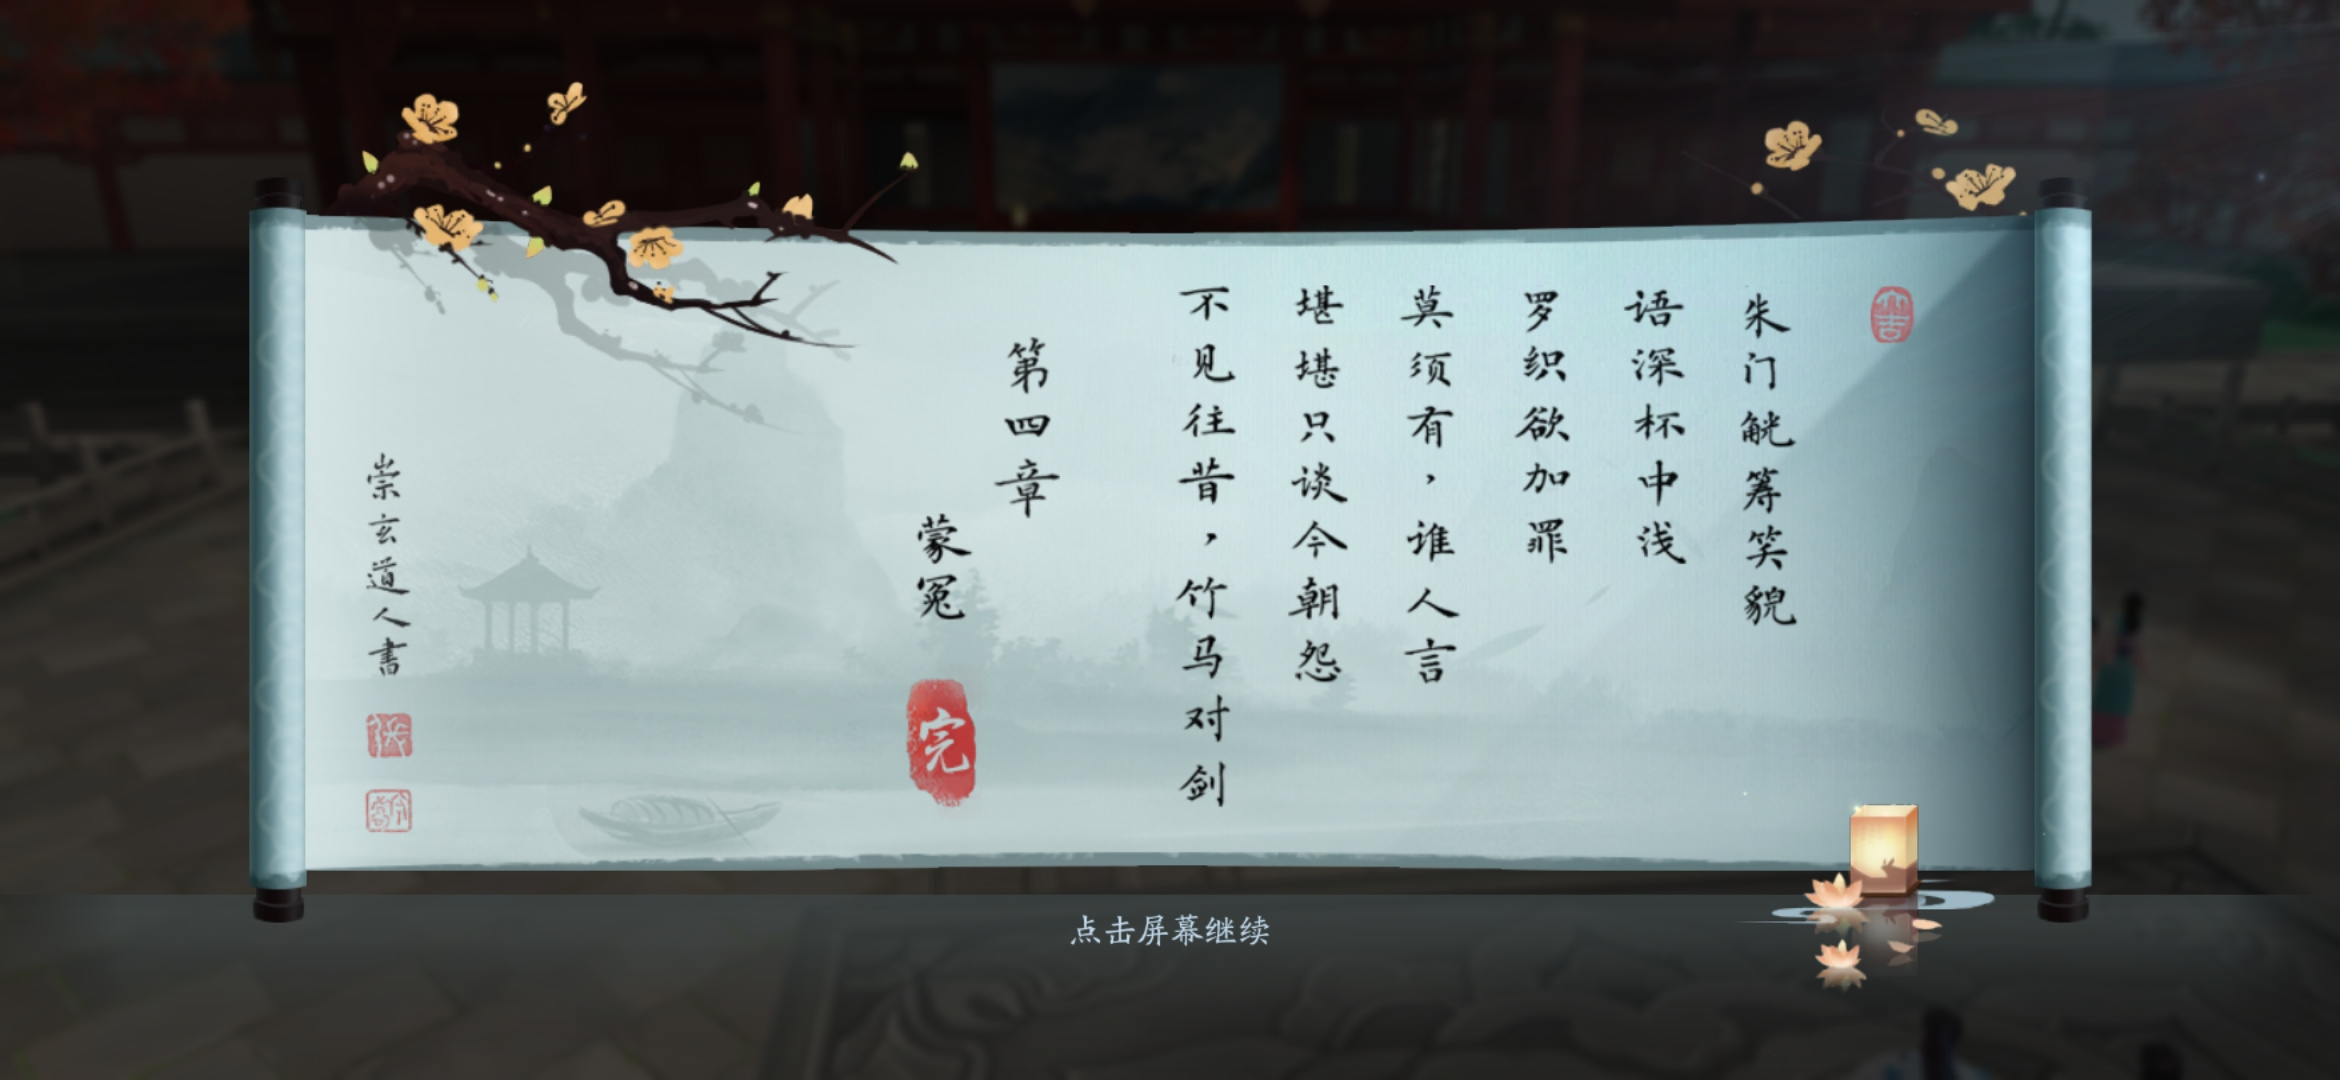 朱门觥筹笑貌
语深杯中浅
罗织欲加罪
莫须有，谁人言
堪堪只谈今朝怨
不见往昔，竹马对剑
第四章
蒙冤
完
崇玄道人書
点击屏幕继续